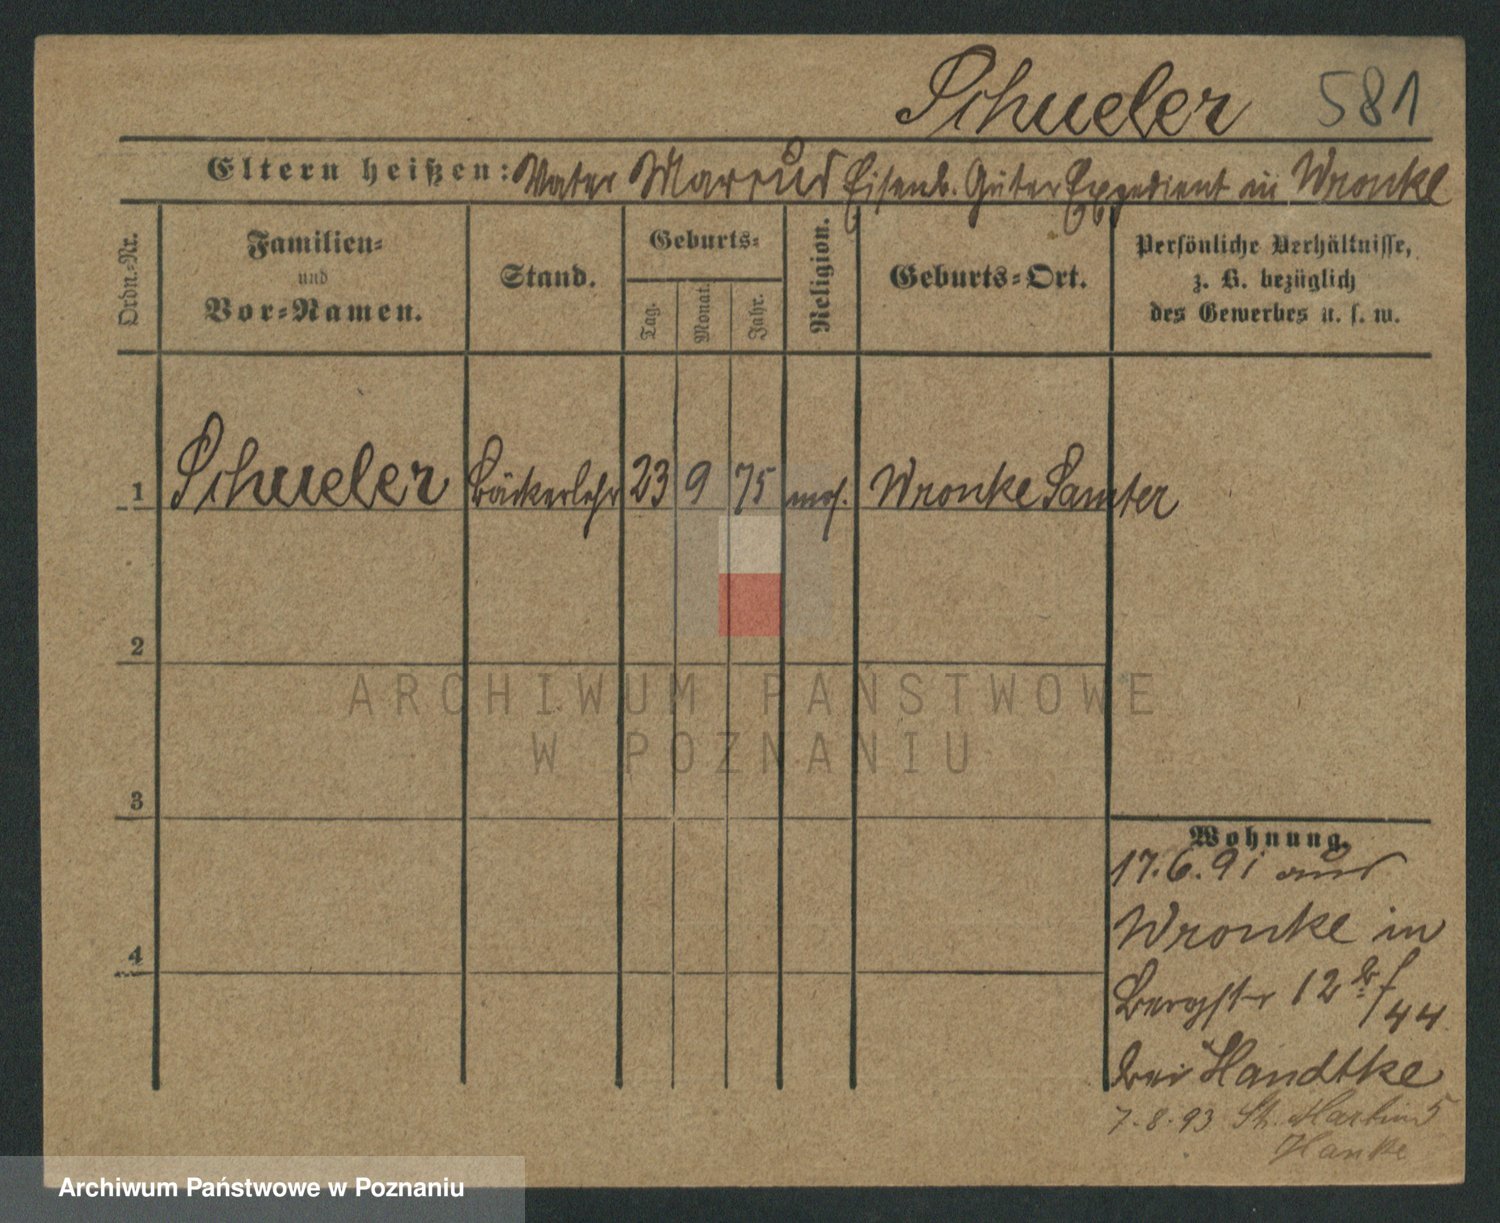 Schueler 581
Eltern heißen: Vater Marcus Eisenb. Güter Expedient in Wronke
Ordn.-Nr.
Familien-
und
Vor-Namen.
Stand.
Geburts-
Tag.
Monat.
Jahr.
Religion.
Geburts-Ort.
Persönliche Verhältnisse,
z. B. bezüglich
des Gewerbes u. s. w.
1 Schueler Bäckerlehr 23 9 75 mos. Wronke Samter
2
3
4
Wohnung.
17.6.91 aus
Wronke in
Bergstr 12 b
44
bei Handtke
7.8.93 St. Martin 5
Hanke
ARCHIWUM PAŃSTWOWE
W POZNANIU
Archiwum Państwowe w Poznaniu